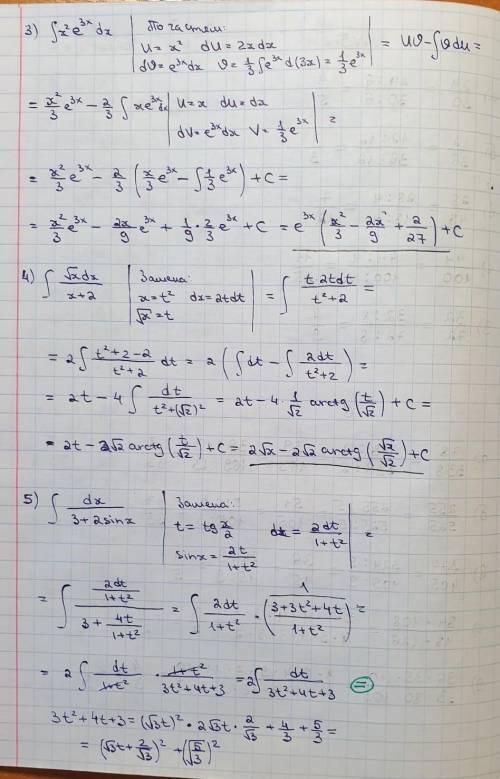 3) ∫x²e^{3x}dx | По частям: U = x² dU = 2xdx dϑ = e^{3x}dx ϑ = 1/3 ∫e^{3x} d(3x) = 1/3 e^{3x} | = Uϑ - ∫ϑdU =
= x²/3 e^{3x} - 2/3 ∫ xe^{3x}dx | U = x dU = dx dV = e^{3x}dx V = 1/3 e^{3x} | =
= x²/3 e^{3x} - 2/3 (x/3 e^{3x} - ∫1/3 e^{3x}) + C =
= x²/3 e^{3x} - 2x/9 e^{3x} + 1/9 · 2/3 e^{3x} + C = e^{3x} (x²/3 - 2x/9 + 2/27) + C
4) ∫ √x dx/(x+2) | Замена: x = t² dx = 2tdt √x = t | = ∫ t 2tdt/(t²+2) =
= 2∫ (t²+2-2)/(t²+2) dt = 2 (∫dt - ∫ 2dt/(t²+2)) =
= 2t - 4∫ dt/(t²+(√2)²) = 2t - 4 · 1/√2 arctg (t/√2) + C =
= 2t - 2√2 arctg (t/√2) + C = 2√x - 2√2 arctg (√x/√2) + C
5) ∫ dx/(3+2sinx) | Замена: t = tg x/2 dx = 2dt/(1+t²) sinx = 2t/(1+t²) | =
= ∫ (2dt/(1+t²))/(3 + 4t/(1+t²)) = ∫ 2dt/(1+t²) · (1/((3+3t²+4t)/(1+t²))) =
= 2∫ dt/(1+t²) · (1+t²)/(3t²+4t+3) = 2∫ dt/(3t²+4t+3) =
3t²+4t+3 = (√3t)² · 2√3t · 2/√3 + 4/3 + 5/3 =
= (√3t + 2/√3)² + (√5/3)²